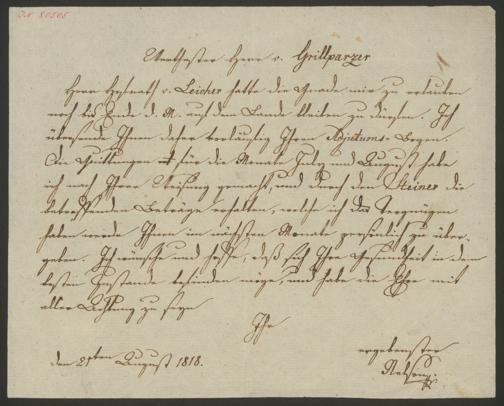 J.N. 80505
Verehrtester Herr v. Grillparzer
Herr Hofrath v. Leicher hatte die Gnade mir zu erlauben
noch bis Ende d. M. auf dem Lande bleiben zu dürfen. Ich
übersende Ihnen daher vorläufig Ihren Adjutums-Bogen.
Die Quittungen für die Monate July und August habe
ich nach Ihrer Weisung gemacht, und durch den Steiner die
betreffenden Beträge erhalten, welche ich das Vergnügen
haben werde Ihnen im nächsten Monate persönlich zu über-
geben. Ich wünsche und hoffe, daß sich Ihre Gesundheit in dem
besten Zustande befinden möge, und habe die Ehre mit
aller Achtung zu seyn
Ihr
ergebenster
den 21ten August 1818.